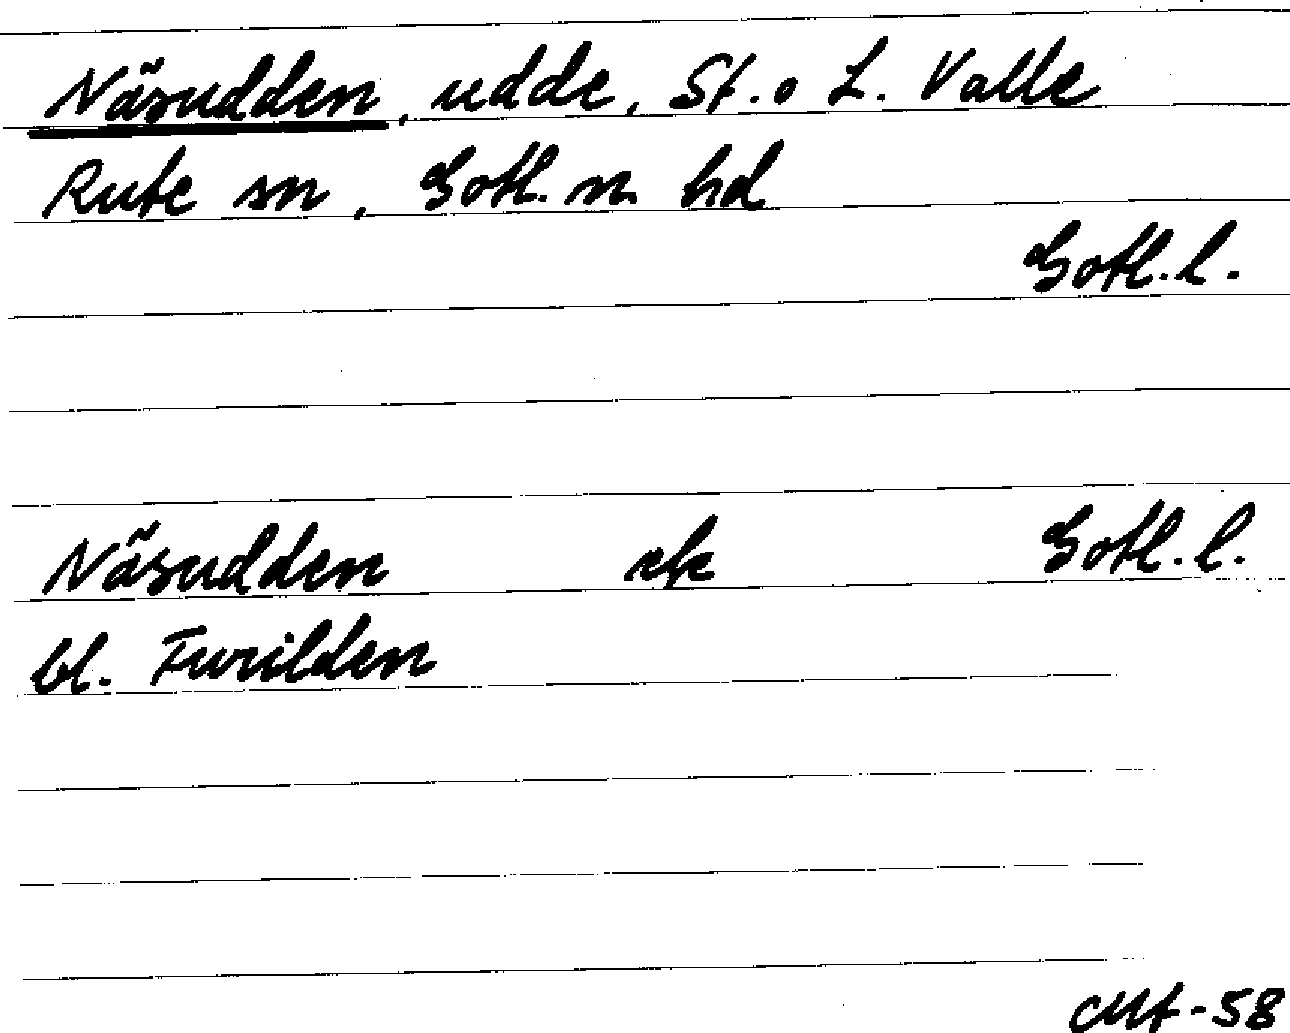 Näsudden, udde, St. o L. Valle
Rute sn, Gotl. n. hd
Gotl. l.
Näsudden ek Gotl. l.
bl. Furilden
-58